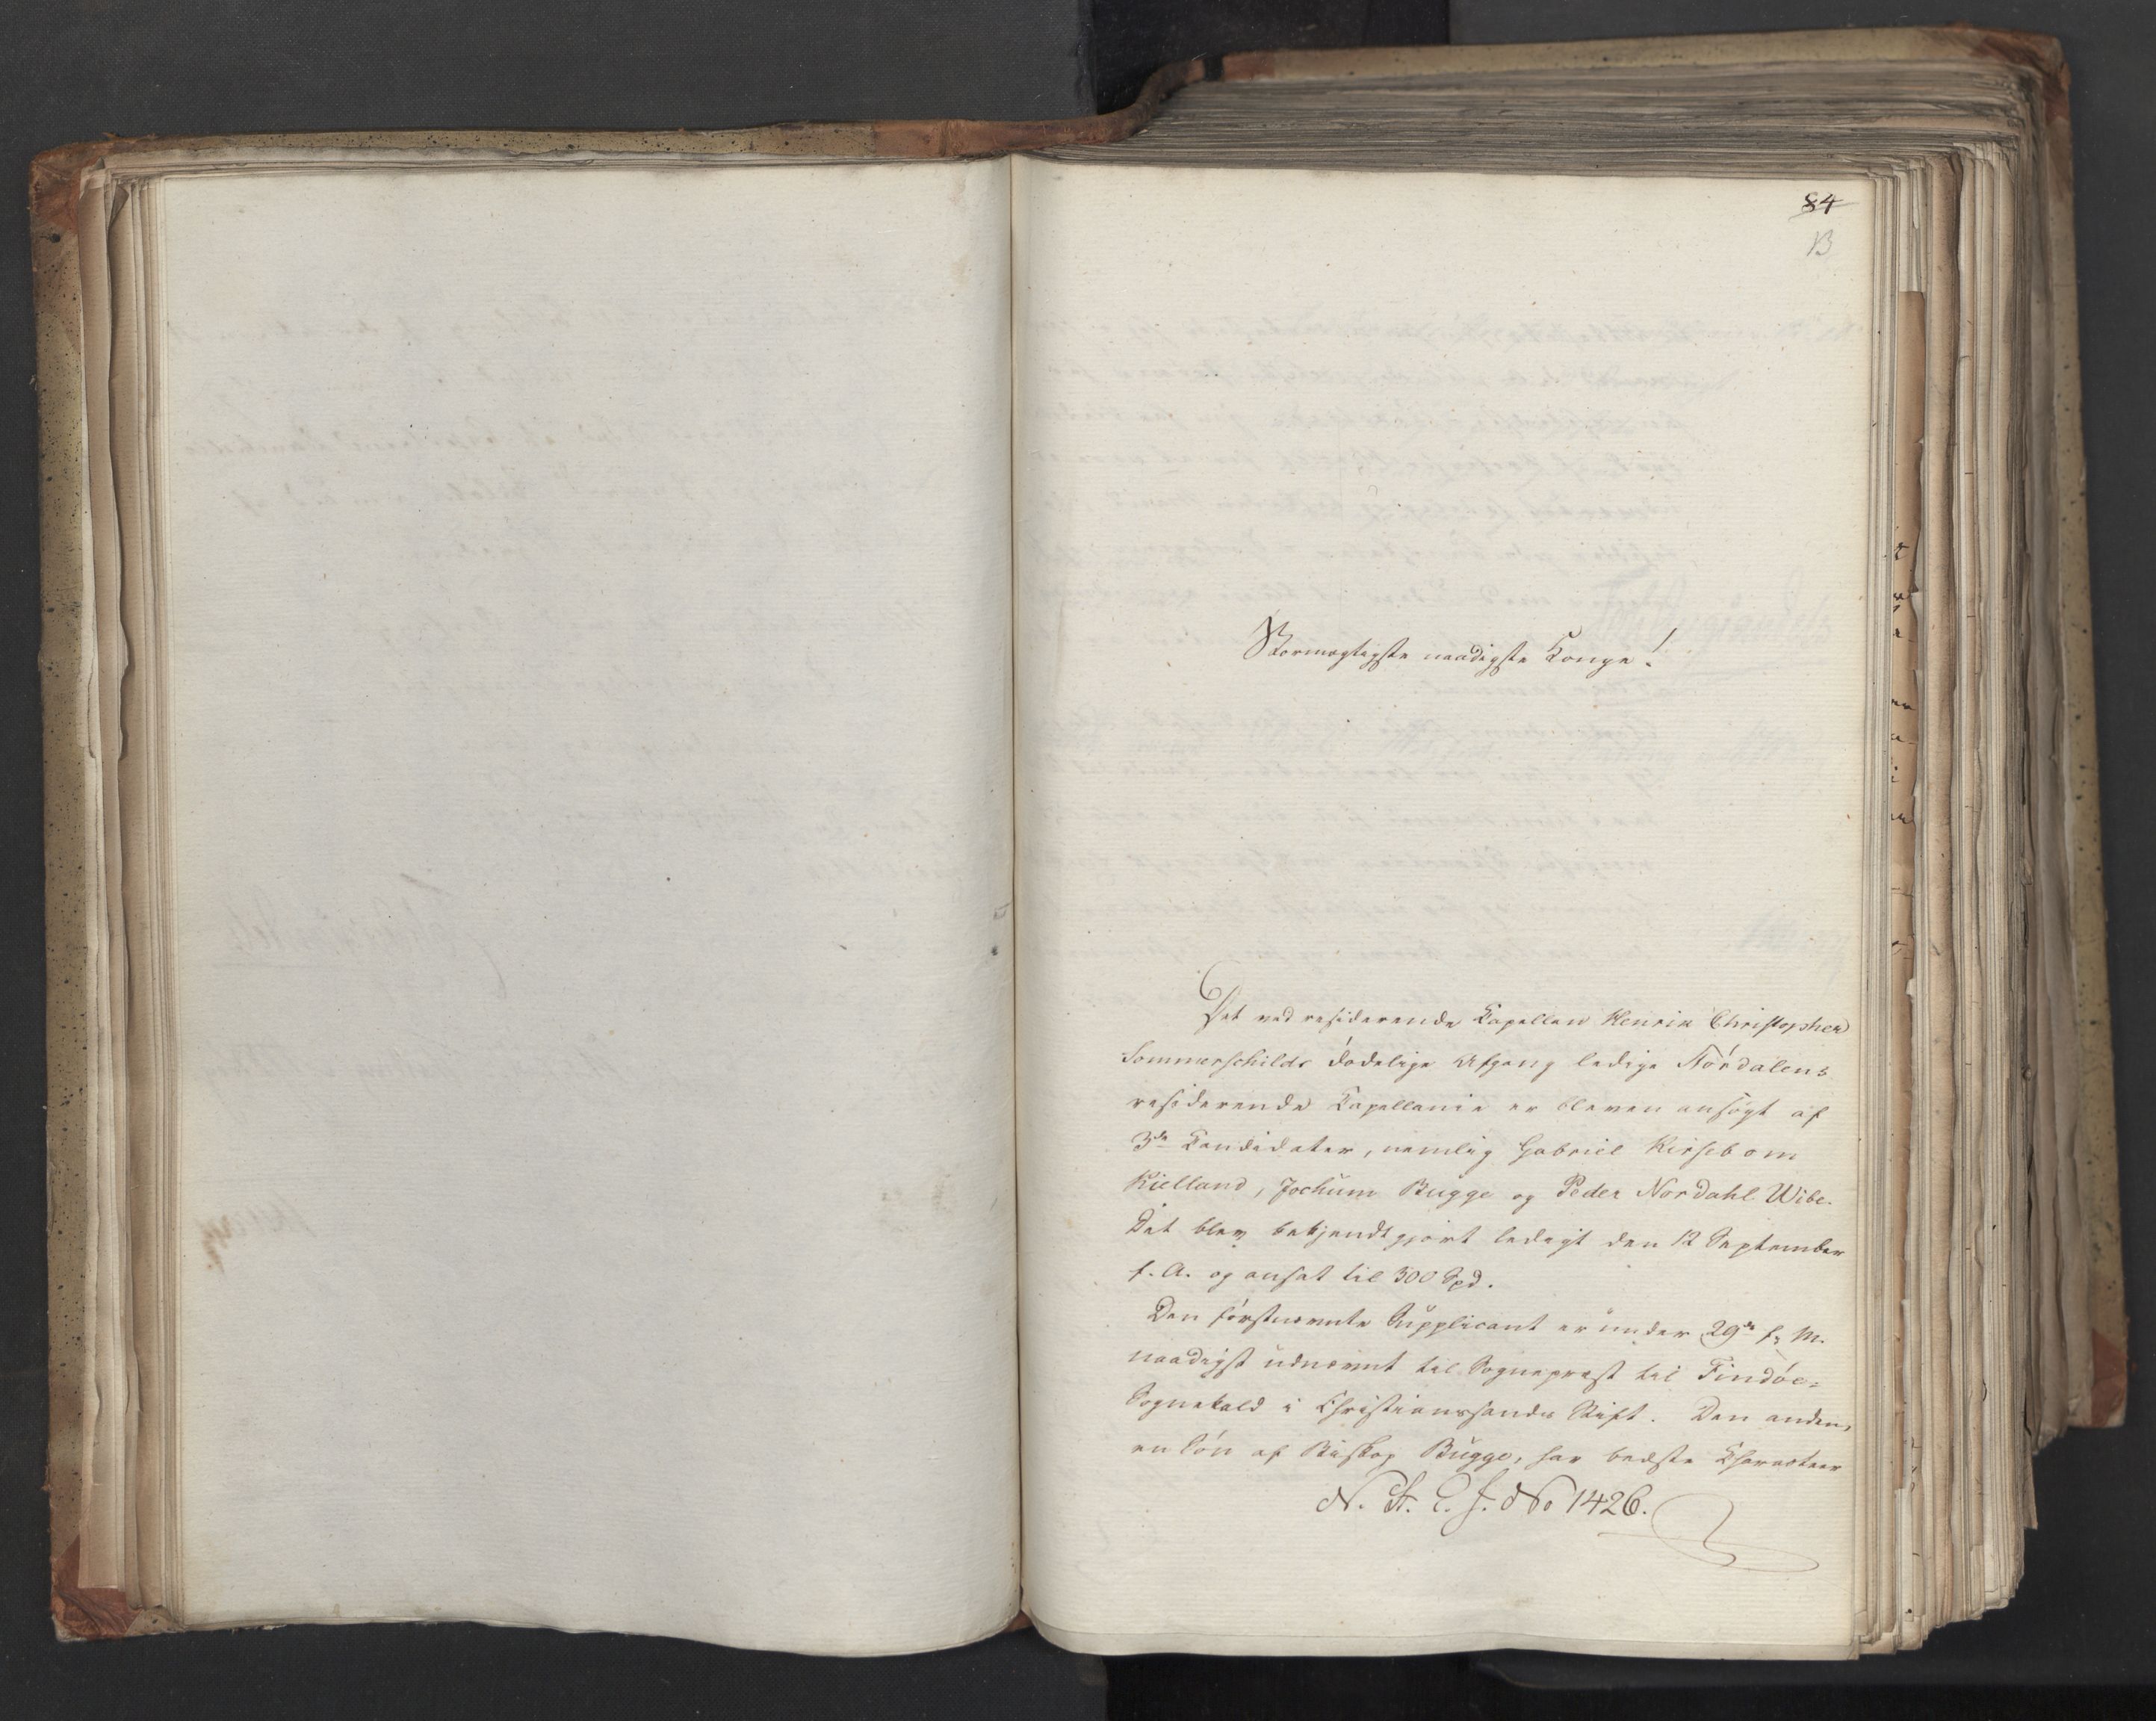 84
13
Stormægtigste naadigste Konge!
Det ved residerende Kapellan Henrik Christopher
Sommerschilds dødelige Afgang ledige Nórdalens
residerende Kapellanie er bleven ansøgt af
3de Candidater, nemlig Gabriel Kirsebom
Kielland, Jochum Bugge og Peder Nordahl Wibe.
Det blev bekjendtgjort ledigt den 12 September
f. A. og ansat til 300 Spd.
Den førstnævnte Supplicant er under 29de f. M.
naadigst udnævnt til Sogneprest til Findöe-
Sognekald i Christianssands Stift. Den anden,
en Søn af Biskop Bugge, har bedste Character
N. St. E. J. No 1426.